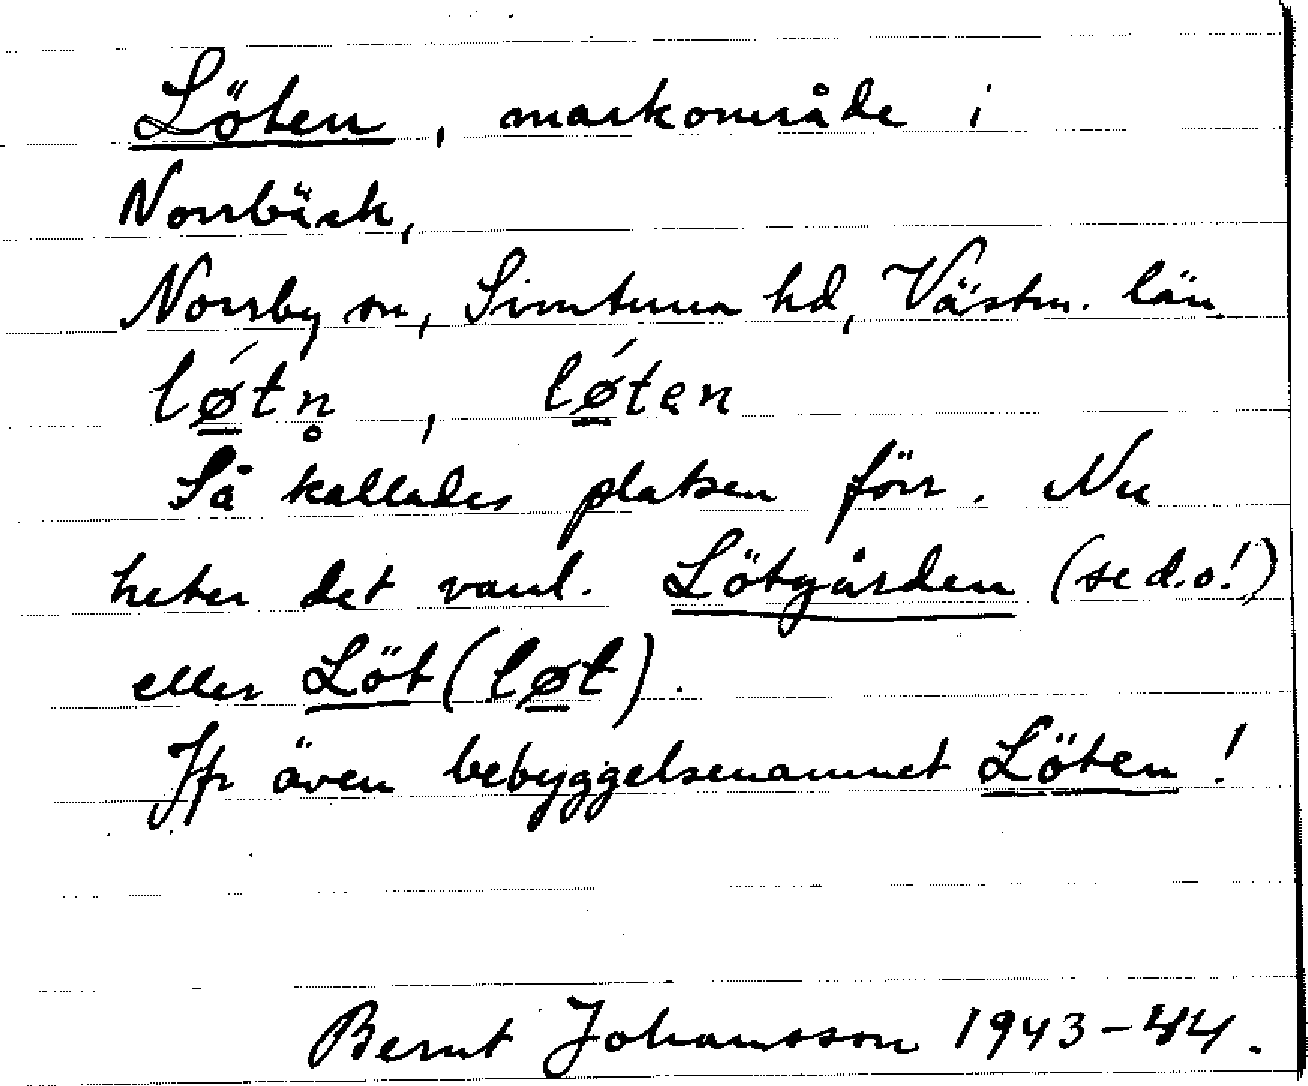 Löten, markområde i
Norrbäck,
Norrby sn, Simtuna hd, Västm. län.
lǿ̲tn̥, lǿ̲ten
Så kallades platsen förr. Nu
heter det vanl. Lötgården (se d.o!)
eller Löt (lø̲t).
Jfr även bebyggelsenamnet Löten!
Bernt Johansson 1943-44.